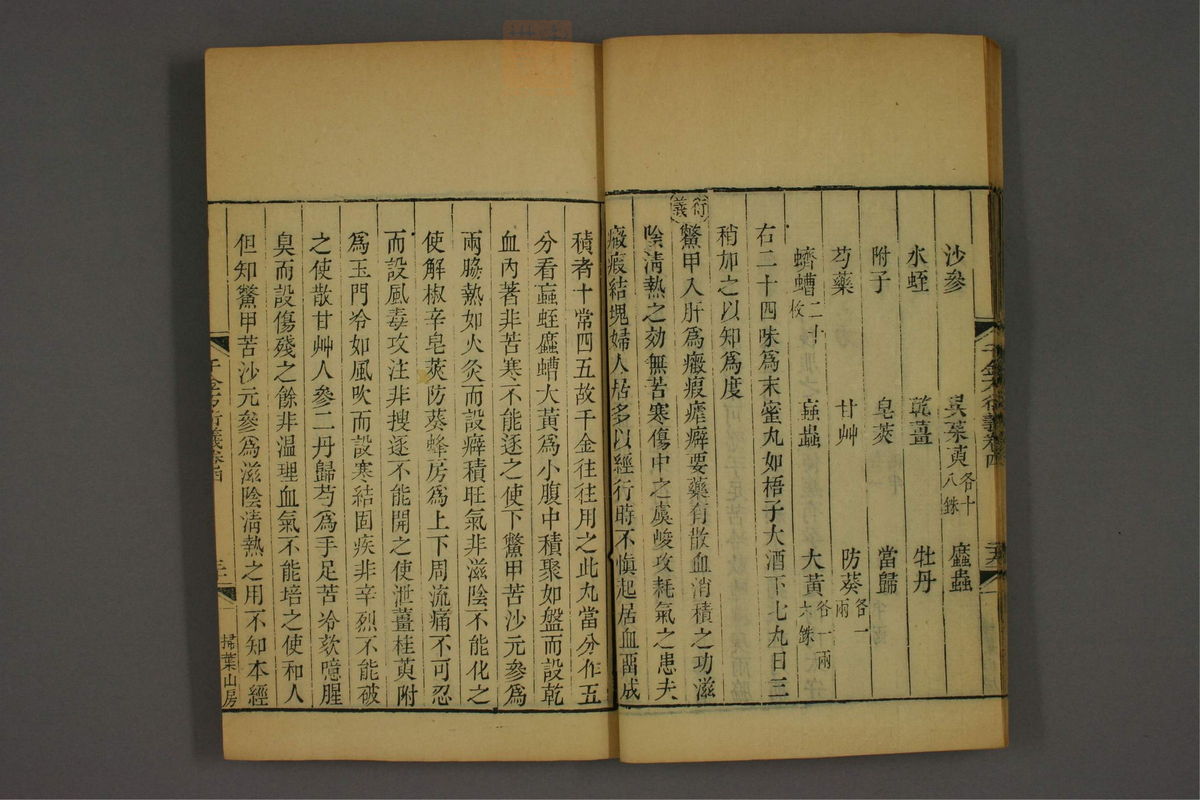 沙參 吳茱萸各十八銖 䗪蟲
水蛭 乾薑 牡丹
附子 皂莢 當歸
芍藥 甘艸 防葵各一兩
蠐螬二十枚 蝱蟲 大黃各一兩六銖
右二十四味為末蜜丸如梧子大酒下七丸日三
稍加之以知為度
衍義
鱉甲入肝為癥瘕瘧癖要藥有散血消積之功滋
陰淸熱之効無苦寒傷中之虞峻攻耗氣之患夫
癥瘕結塊婦人居多以經行時不愼起居血畱成
積者十常四五故千金往往用之此丸當分作五
分看蝱蛭䗪螬大黃為小腹中積聚如盤而設乾
血內著非苦寒不能逐之使下鱉甲苦沙元參為
兩脇熱如火灸而設癖積旺氣非滋陰不能化之
使解椒辛皂莢防葵蜂房為上下周流痛不可忍
而設風毒攻注非搜逐不能開之使泄薑桂萸附
為玉門冷如風吹而設寒結固疾非辛烈不能破
之使散甘艸人參二丹歸芍為手足苦冷欬噫腥
臭而設傷殘之餘非溫理血氣不能培之使和人
但知鱉甲苦沙元參為滋陰淸熱之用不知本經
千金方衍義卷四
掃葉山房